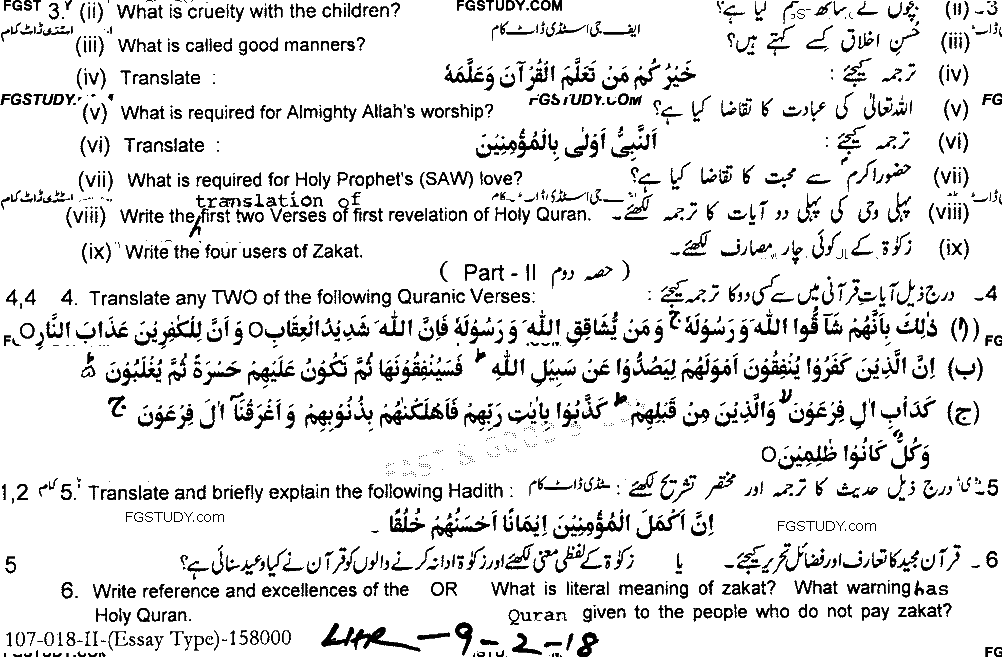 FGST 3. (ii) What is cruelty with the children? FGSTUDY.COM بچوں کے ساتھ کیا ہے؟ (ii) -3
(iii) What is called good manners? ایف جی اسٹڈی ڈاٹ کام حسنِ اخلاق کسے کہتے ہیں؟ (iii)
(iv) Translate : خَيْرُ كُمْ مَنْ تَعَلَّمَ الْقُرْآنَ وَعَلَّمَهُ ترجمہ کیجئے : (iv)
FGSTUDY. (v) What is required for Almighty Allah's worship? FGSTUDY.COM اللہ تعالٰی کی عبادت کا تقاضا کیا ہے؟ (v) FG
(vi) Translate : اَلنَّبِيُّ اَوْلٰى بِالْمُؤْمِنِيْنَ ترجمہ کیجئے : (vi)
(vii) What is required for Holy Prophet's (SAW) love? حضور اکرمؐ سے محبت کا تقاضا کیا ہے؟ (vii)
(viii) Write the translation of first two Verses of first revelation of Holy Quran. پہلی وحی کی پہلی دو آیات کا ترجمہ لکھئے۔ (viii)
(ix) Write the four users of Zakat. زکوٰۃ کے کوئی چار مصارف لکھئے۔ (ix)
( Part - II حصہ دوم )
4,4 4. Translate any TWO of the following Quranic Verses: درج ذیل آیاتِ قرآنی میں سے کسی دو کا ترجمہ کیجئے : -4
(ا) ذٰلِكَ بِاَنَّهُمْ شَآقُّوا اللّٰهَ وَرَسُوْلَهٗ ج وَمَنْ يُّشَاقِقِ اللّٰهَ وَرَسُوْلَهٗ فَاِنَّ اللّٰهَ شَدِيْدُ الْعِقَابِ○ وَاَنَّ لِلْكٰفِرِيْنَ عَذَابَ النَّارِ○
(ب) اِنَّ الَّذِيْنَ كَفَرُوْا يُنْفِقُوْنَ اَمْوَالَهُمْ لِيَصُدُّوْا عَنْ سَبِيْلِ اللّٰهِ ط فَسَيُنْفِقُوْنَهَا ثُمَّ تَكُوْنُ عَلَيْهِمْ حَسْرَةً ثُمَّ يُغْلَبُوْنَ ط
(ج) كَدَاْبِ اٰلِ فِرْعَوْنَ لا وَالَّذِيْنَ مِنْ قَبْلِهِمْ ط كَذَّبُوْا بِاٰيٰتِ رَبِّهِمْ فَاَهْلَكْنٰهُمْ بِذُنُوْبِهِمْ وَاَغْرَقْنَآ اٰلَ فِرْعَوْنَ ج
وَكُلٌّ كَانُوْا ظٰلِمِيْنَ○
1,2 5. Translate and briefly explain the following Hadith : درج ذیل حدیث کا ترجمہ اور مختصر تشریح لکھئے : -5
FGSTUDY.com اِنَّ اَكْمَلَ الْمُؤْمِنِيْنَ اِيْمَانًا اَحْسَنُهُمْ خُلُقًا ۔ FGSTUDY.com
5 قرآن مجید کا تعارف اور فضائل تحریر کیجئے۔ یا زکوٰۃ کے لفظی معنی لکھئے اور زکوٰۃ ادا نہ کرنے والوں کو قرآن نے کیا وعید سنائی ہے؟ -6
6. Write reference and excellences of the OR What is literal meaning of zakat? What warning has
Holy Quran. Quran given to the people who do not pay zakat?
107-018-II-(Essay Type)-158000 LHR-9-2-18